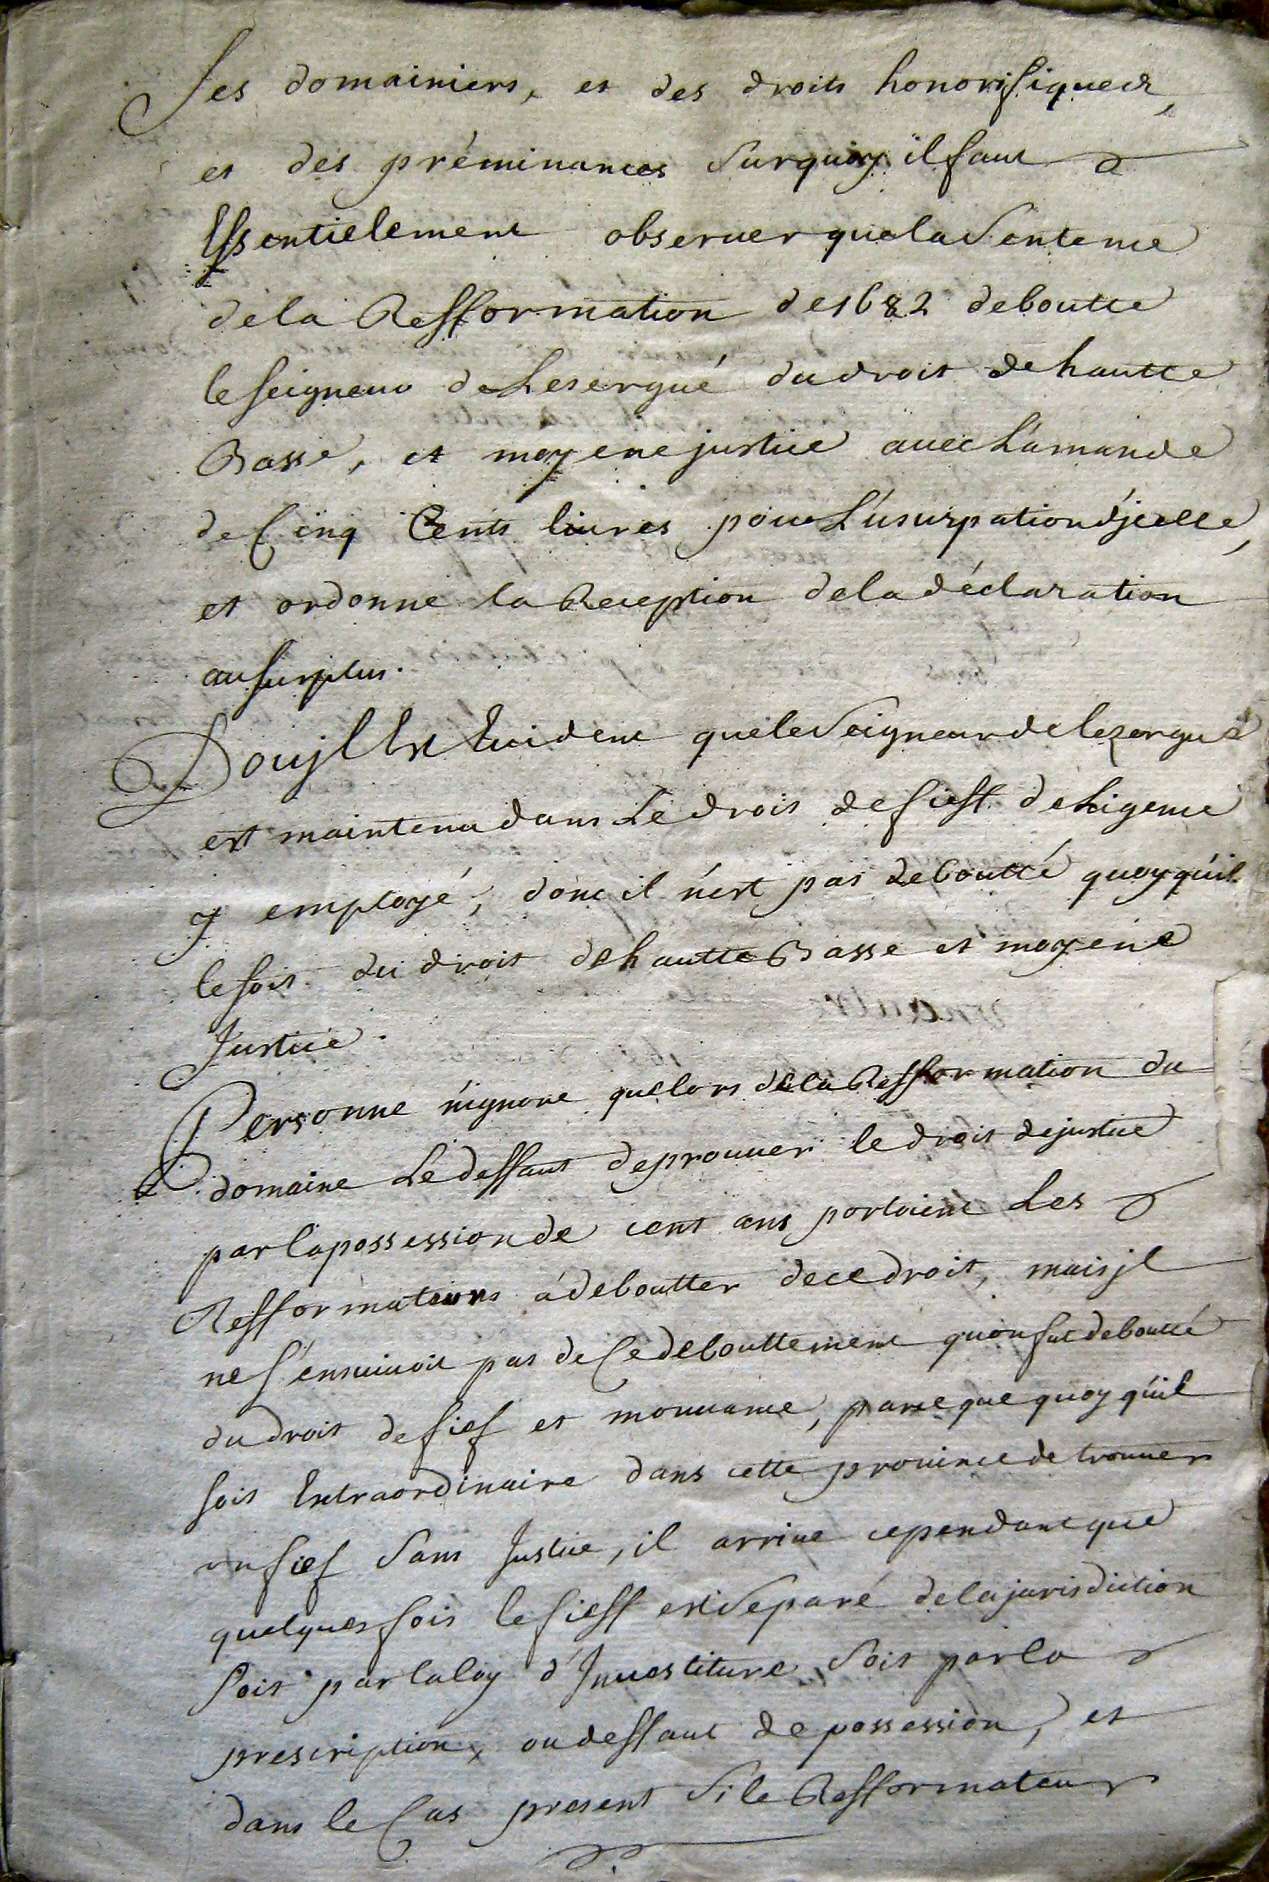 ses domainiers, et des droits honorifiques,
et des préminances surquoy il faut
Essentielement observer que la Sentence
de la Refformation de 1682 deboutte
le seigneur de Lesergué du droit de hautte
Basse, et moyene justice avec L'amande
de Cinq Cents livres pour L'usurpation d'jcelle,
et ordonne la Reception de la déclaration
au surplus.
Doujl Est Evident que le Seigneur de lezergué
est maintenu dans Le droit de fieff de Ligence
y employé, donc il n'est pas deboutté quoy qu'il
le soit du droit de hautte Basse et moyene
Justice.
Personne n'ignore que lors de la Refformation du
domaine Le deffaut de prouver le droit de justice
par la possession de cent ans portoient Les
Refformateurs á deboutter de ce droit, mais jl
ne s'ensuivoit pas de Ce debouttement qu'on fut deboutté
du droit de fief et mouvance, parce que quoy qu'il
soit Extraordinaire dans cette province de trouver
un fief Sans Justice, il arrive cependant que
quelques fois le fieff est Separé de la jurisdiction
soit par la loy d'Investiture soit par la
prescription, ou deffaut de possession, et
dans le Cas present Si le Refformateur